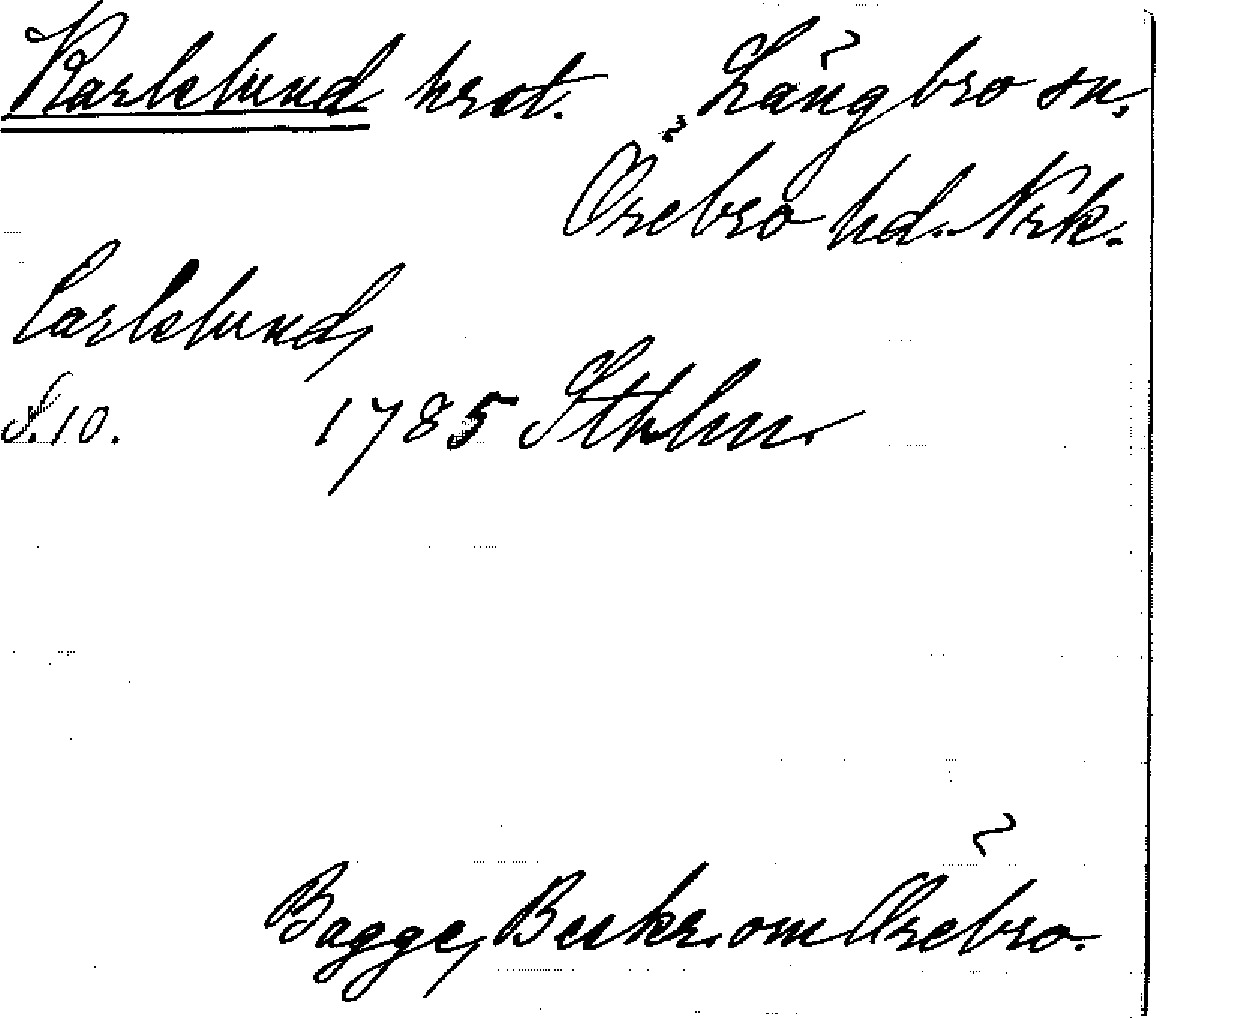 Karlslund hrst. Längbro sn.
Örebro hd. Nrk.
Carlslund,
S. 10. 1785 Sthlm.
Bagge, Beskr. om Örebro.